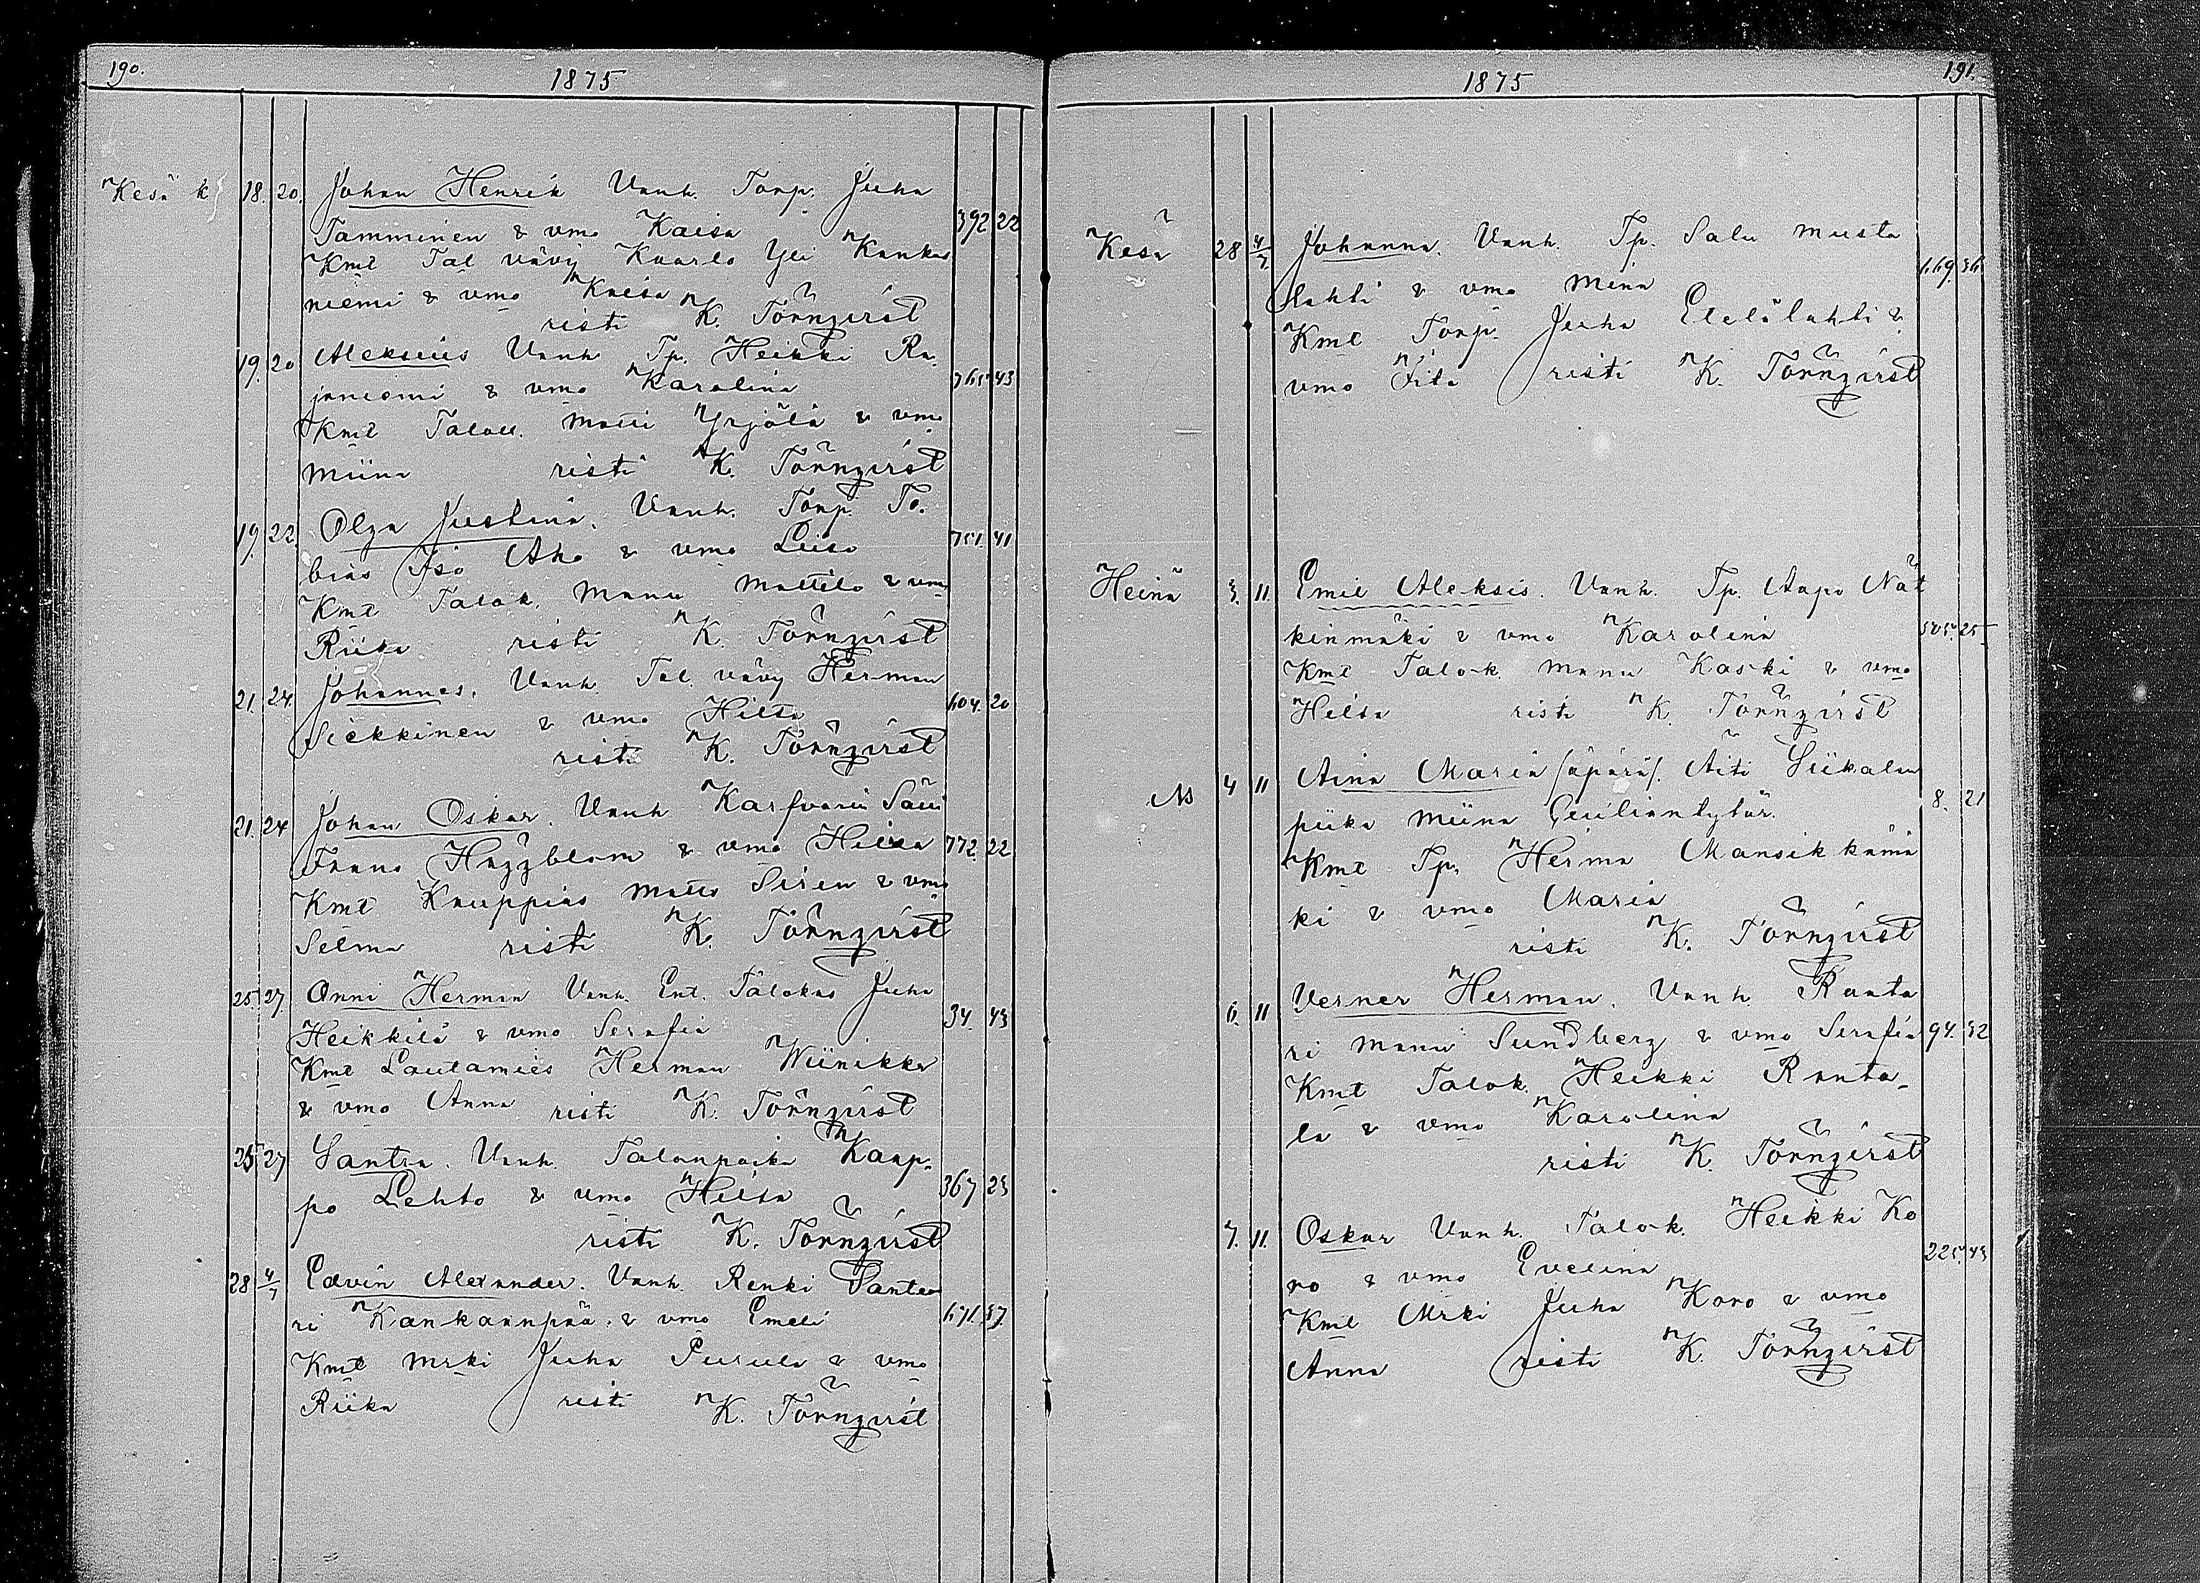 190.
1875
Kesä k 18. 20. Johan Henrik Vanh. Torp. Juha
Tamminen & vmo Kaisa 392 22
Kmt Tal vävy Kaarlo Yli Kankas
niemi & vmo Kaisa
risti K. Törnqvist
19. 20 Aleksius Vanh Tp. Heikki Ra
janiemi & vmo Karolina 765 43
Kmt Talou. Matti Yrjölä & vmo
Miina risti K. Törnqvist
19. 22. Olga Justina. Vanh. Torp. To.
bias Iso Aho & vmo Liisa 751. 41
Kmt Talok. Manu Mattila & vmo
Riika risti K. Törnqvist
21. 24 Johannes. Vanh. Tal. vävy Herman
Siekkinen & vmo Hilta 604. 20
risti K. Törnqvist
21. 24 Johan Oskar. Vanh Karfvarin Sälli
Frans Häggblom & vmo Hilda 772. 22
Kmt Kauppias Matts Siren & vmo
Selma risti K. Törnqvist
25. 27. Onni Herman Vanh. Ent. Talokas Juha
Heikkilä & vmo Serafia 34. 43
Kmt Lautamies Herman Wiinikka
& vmo Anna risti K. Törnqvist
25 27 Santra. Vanh. Talonpoika Kaap-
po Lehto & vmo Hilta 367 23
risti K. Törnqvist
28 4/7 Edvin Alexander. Vanh. Renki Santte
ri Kankaanpää. & vmo Emeli 671. 37.
Kmt Mrki Juha Puurula & vmo
Riika risti K. Törnqvist
191.
1875
Kesä 28 4/7 Johanna. Vanh. Tp. Salu Musta
lahti & vmo Mina 669. 36
Kmt Torp. Juha Etelälahti &
vmo Fita risti K. Törnqvist
Heinä 3. 11. Emil Aleksis. Vanh. Tp. Aapo Nät
kinmäki & vmo Karolina 505. 25
Kmt Talok. Manu Kaski & vmo
Hilta risti K. Törnqvist
Ns 4 11 Aina Maria (äpärä). Äiti Siikalan
piika Miina Ceciliantytär. 8. 21
Kmt Tp. Herma Mansikkamä
ki & vmo Maria
risti K. Törnqvist
6. 11 Verner Herman. Vanh Raata
ri Manu Sundberg & vmo Serafia 94. 32
Kmt Talok. Heikki Ranta-
la & vmo Karolina
risti K. Törnqvist
7. 11. Oskar Vanh. Talok. Heikki Ko
ro & vmo Evelina 225. 43
Kmt Mrki Juha Koro & vmo
Anna risti K. Törnqvist